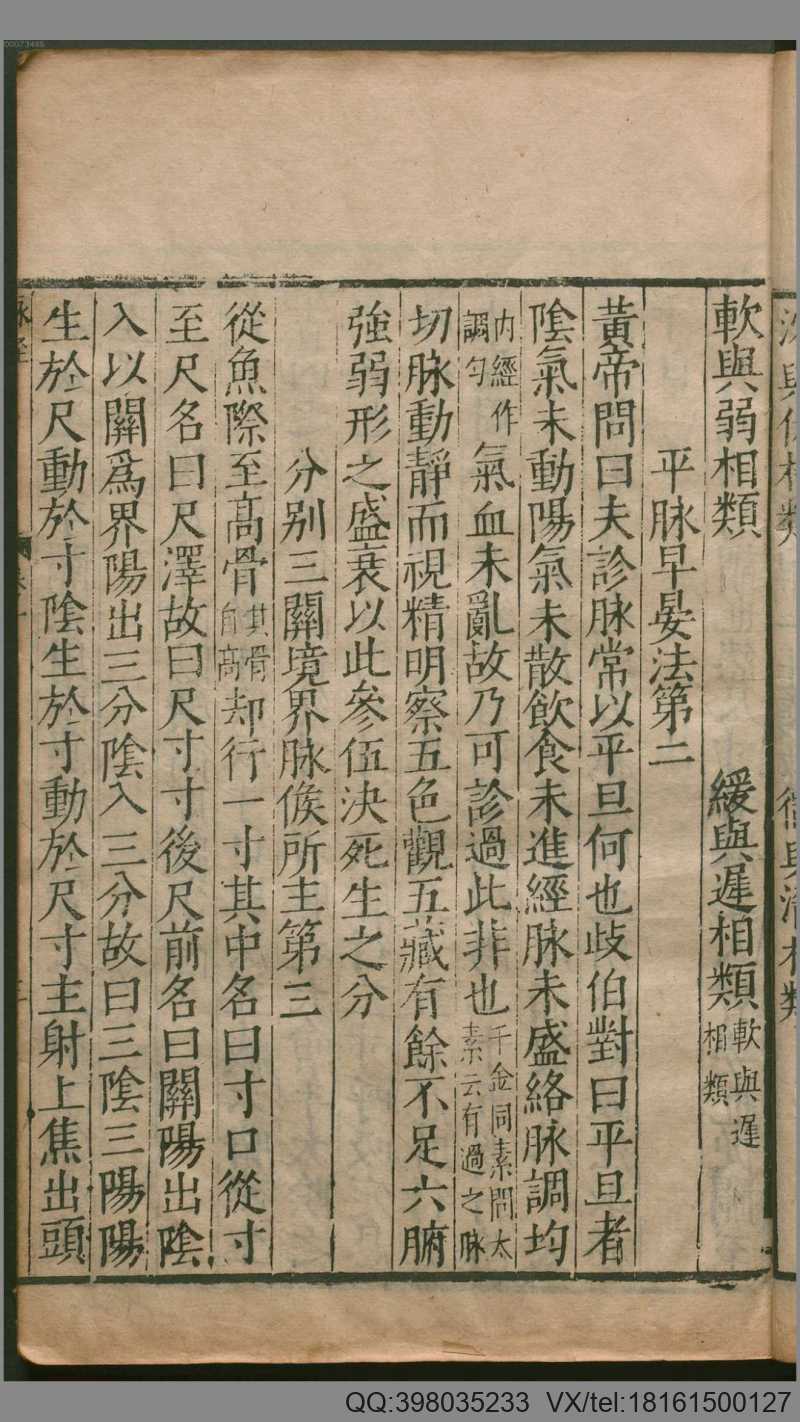 軟與弱相類 緩與遲相類 軟與遲相類
平脉早晏法第二
黃帝問曰夫診脉常以平旦何也歧伯對曰平旦者
陰氣未動陽氣未散飲食未進經脉未盛絡脉調均
内經作調勻氣血未亂故乃可診過此非也千金同素問太素云有過之脉
切脉動靜而視精明察五色觀五藏有餘不足六腑
強弱形之盛衰以此參伍決死生之分
分别三關境界脉候所主第三
從魚際至高骨其骨自高却行一寸其中名曰寸口從寸
至尺名曰尺澤故曰尺寸寸後尺前名曰關陽出陰
入以關爲界陽出三分陰入三分故曰三陰三陽陽
生於尺動於寸陰生於寸動於尺寸主射上焦出頭
脉經
QQ:398035233 VX/tel:18161500127